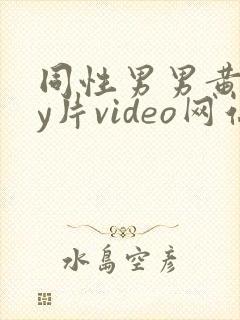 同性男男黄
y片video网
水岛空彦